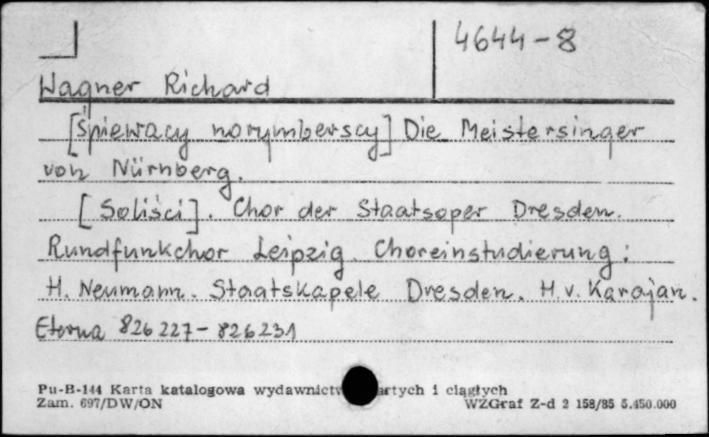 4644-8
Wagner Richard
[Śpiewacy norymberscy] Die Meistersinger
von Nürnberg.
[Soliści]. Chor der Staatsoper Dresden.
Rundfunkchor Leipzig. Choreinstudierung:
H. Neumann. Staatskapele Dresden. H. v. Karajan.
Eterna 826 227-826231
Pu-B-144 Karta katalogowa wydawnictw artych i ciągłych
Zam. 697/DW/ON WZGraf Z-d 2 158/85 5.450.000